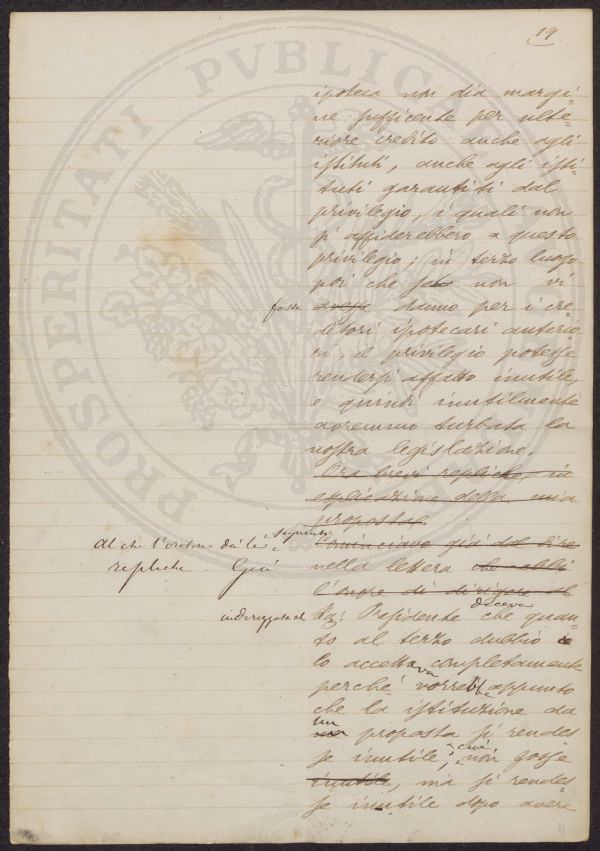 19
PROSPERITATI PVBLICAE
ipoteca non dia margi-
ne sufficente per ulte-
riore credito anche agli
istituti, anche agli isti-
tuti garantiti dal
privilegio, i quali non
si affiderebbero a questo
privilegio; in terzo luogo
poi che non vi
fosse
avesse danno per i cre-
ditori ipotecari anterio-
ri, il privilegio potesse
rendersi affatto inutile,
e quindi inutilmente
avremmo turbata la
nostra legislazione.
Ora brevi repliche, in
esplicazione della mia
proposta.
Al che l'oratore dà le seguenti
repliche Già
Cominciavo già dal dire
nella lettera che ebbi
l'onore di dirigere al
indirizzata al
Presidente diceva che quan-
to al terzo dubbio io
lo accettava completamente
perché vorrebbe appunto
che la istituzione da
un
proposta si rendes
se inutile, cioè, non fosse
inutile, ma si rendes
se inutile dopo avere